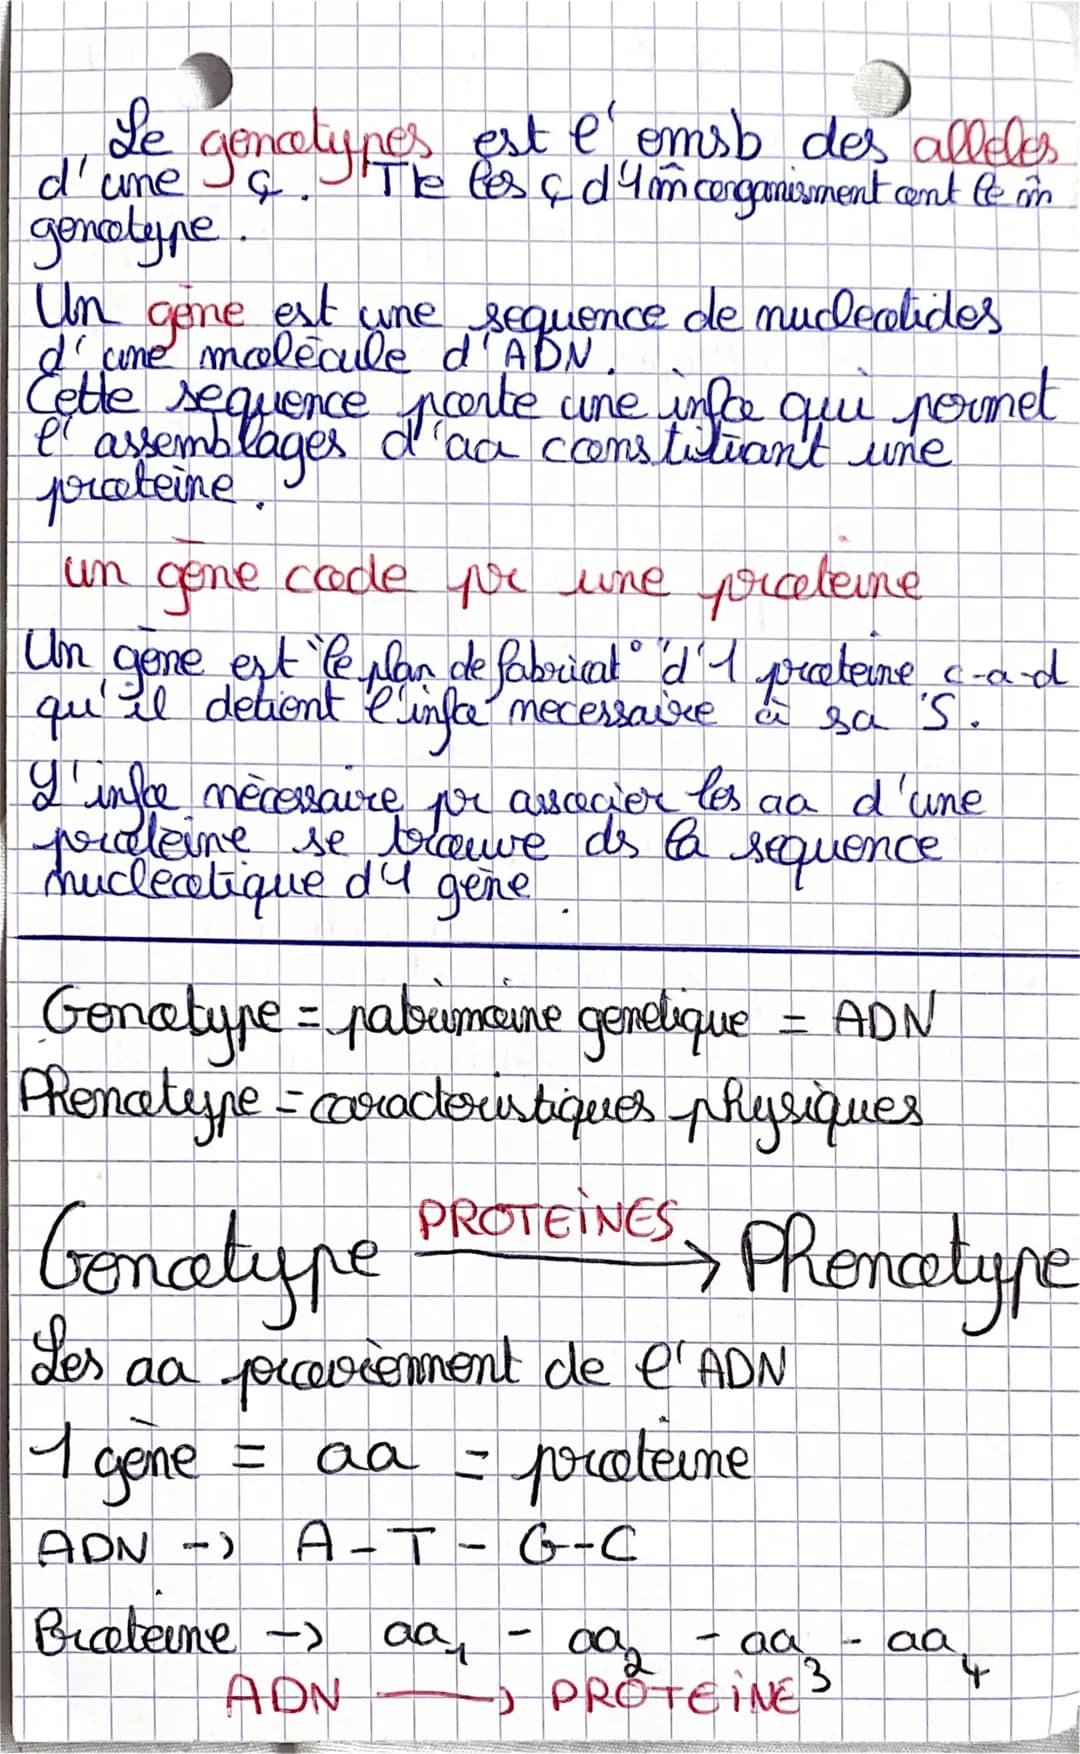 Le genotypes est l'emsb des alleles
d'une ç. Tte les ç d'1 m̂ organisment ont le m̂
genotype.
Un gène est une sequence de nucleotides
d'une molécule d'ADN.
Cette sequence porte une info qui permet
l'assemblages d'aa constituant une
proteine.
un gène code pr une proteine
Un gène est "le plan de fabricat°" d'1 proteine c-a-d
qu'il detient l'info necessaire à sa S.
L'info nécessaire pr associer les aa d'une
proteine se trouve ds la sequence
nucleotique d'1 gène.
Genotype = patrimoine genetique = ADN
Phenotype = caracteristiques physiques
PROTEINES
Genotype → Phenotype
Les aa proviennent de l'ADN
1 gène = aa = proteine
ADN -> A-T-G-C
Proteine -> aa1 - aa2 - aa3 - aa4
ADN → PROTEINE